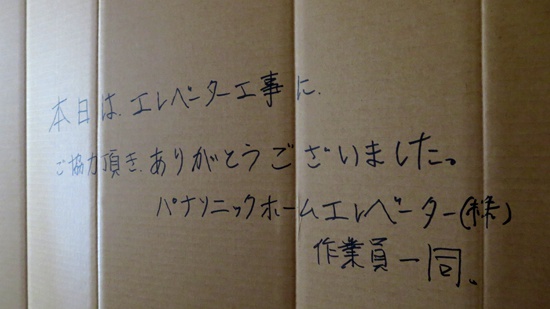 本日は、エレベーター工事に、
ご協力頂き、ありがとうございました。
パナソニックホームエレベーター(株)
作業員一同、